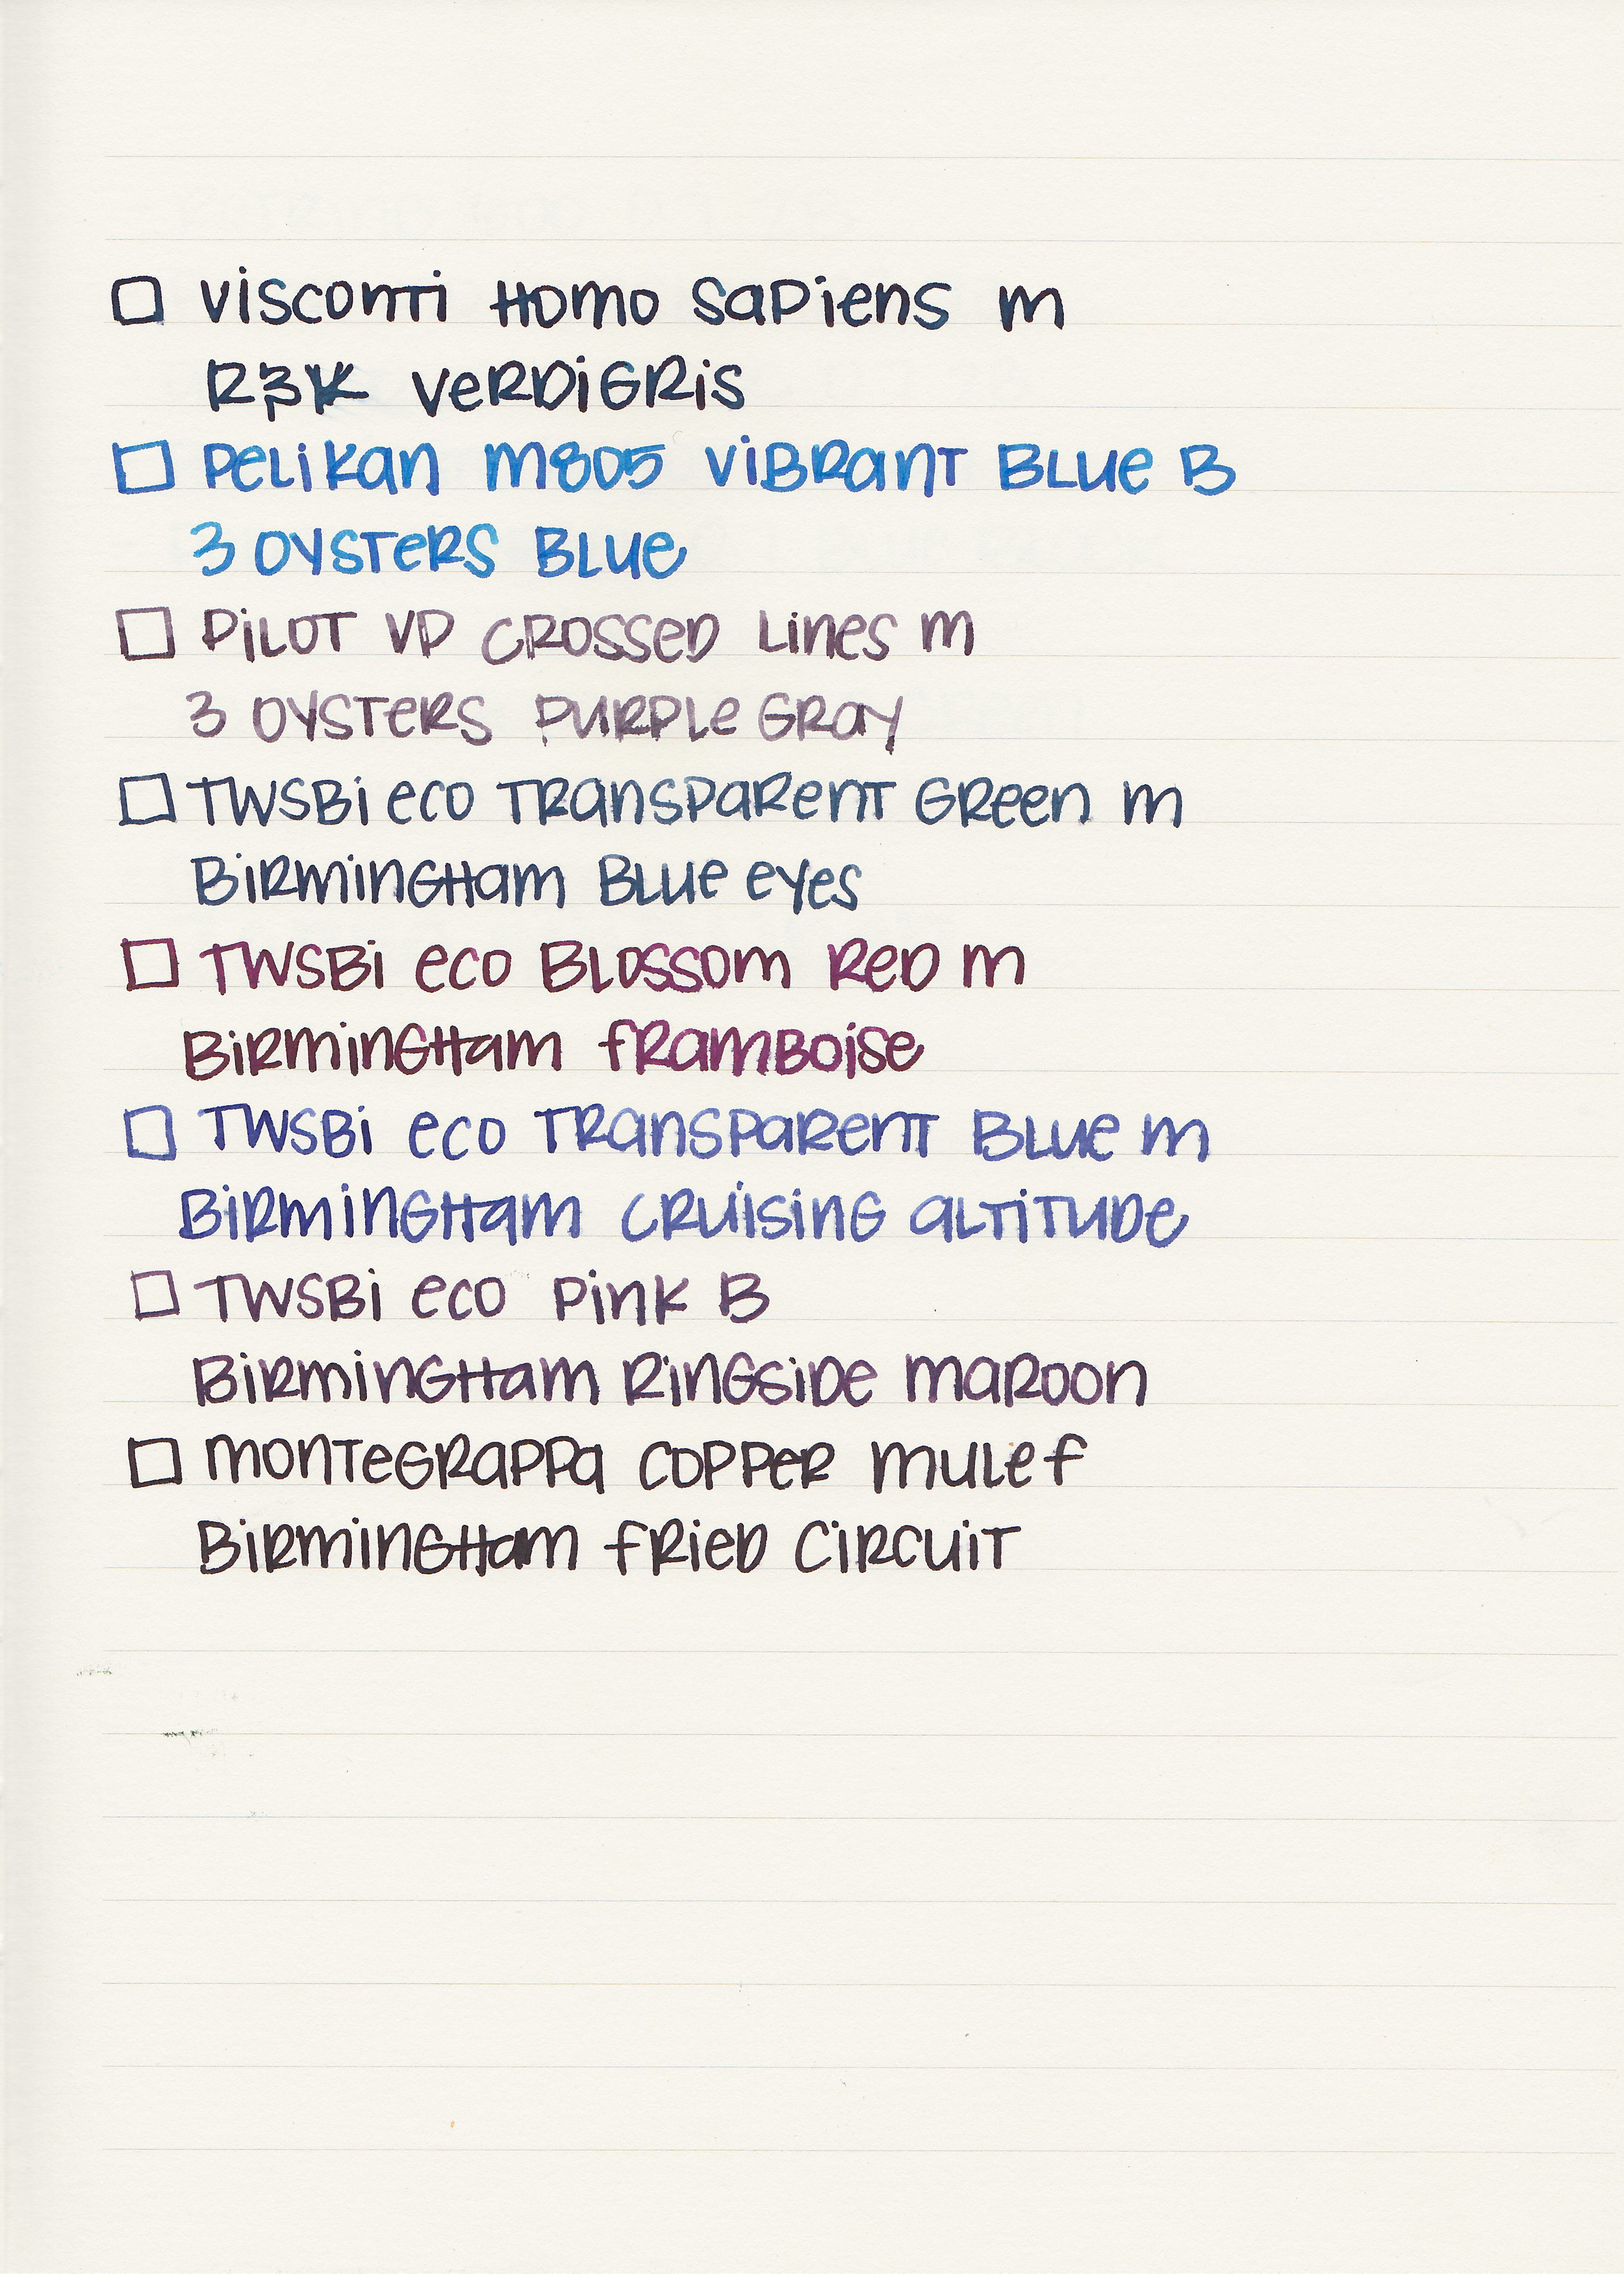 ☐ Visconti Homo Sapiens m
R&K Verdigris
☐ Pelikan m805 Vibrant Blue B
3 Oysters Blue
☐ Pilot VP Crossed Lines m
3 Oysters Purple Gray
☐ TWSBi eco Transparent Green m
Birmingham Blue eyes
☐ TWSBi eco Blossom Red m
Birmingham framboise
☐ TWSBi eco Transparent Blue m
Birmingham Cruising altitude
☐ TWSBi eco Pink B
Birmingham Ringside maroon
☐ montegrappa copper mule f
Birmingham fried circuit